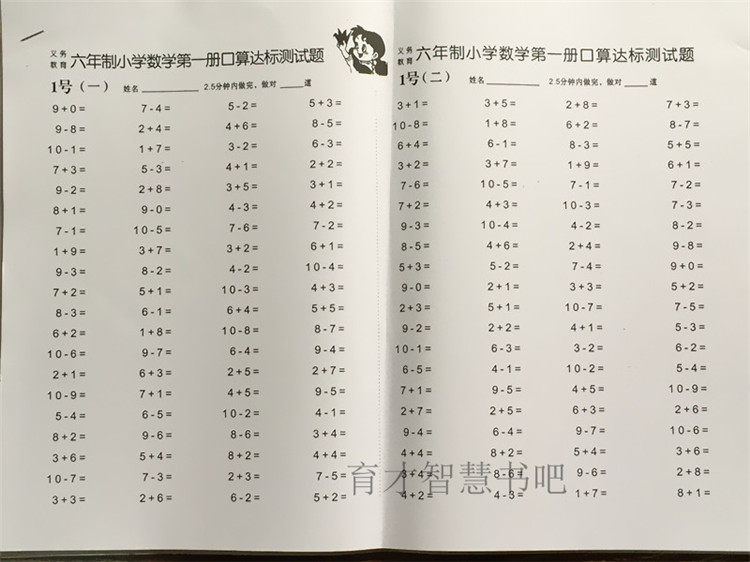 义务教育 六年制小学数学第一册口算达标测试题
1号(一) 姓名________ 2.5分钟内做完,做对____道
9+0= 7-4= 5-2= 5+3=
9-8= 2+4= 4+6= 8-5=
10-1= 1+7= 3-2= 6-3=
7+3= 5-3= 4+1= 2+2=
9-2= 2+8= 3+5= 3+1=
8+1= 9-0= 4-3= 4+2=
7-1= 10-5= 7-6= 7-2=
1+9= 3+7= 3+2= 6+1=
9-3= 8-2= 4-2= 10-4=
7+2= 5+1= 10-3= 4+3=
8-3= 6-1= 6+4= 5+5=
6+2= 1+8= 10-8= 8-7=
10-6= 9-7= 6-4= 9-4=
2+1= 6+3= 2+5= 2+7=
10-9= 7+1= 4+5= 9-5=
5-4= 6-5= 10-2= 4-1=
8+2= 9-6= 8-6= 3+4=
3+6= 5+4= 8+2= 4+4=
10-7= 7-3= 2+3= 7-5=
3+3= 2+6= 6-2= 5+2=
义务教育 六年制小学数学第一册口算达标测试题
1号(二) 姓名________ 2.5分钟内做完,做对____道
3+1= 3+5= 2+8= 7+3=
10-8= 1+8= 6+2= 8-7=
6+4= 6-1= 8-3= 5+5=
3+2= 3+7= 1+9= 6+1=
7-6= 10-5= 7-1= 7-2=
7+2= 4+3= 10-3= 7-3=
9-3= 10-4= 4-2= 8-2=
8-5= 4+6= 2+4= 9-8=
5+3= 5-2= 7-4= 9+0=
9-0= 2+1= 3+3= 5+2=
2+3= 5+1= 10-7= 7-5=
9-2= 2+2= 4+1= 5-3=
10-1= 6-3= 3-2= 6-2=
6-5= 4-1= 10-2= 5-4=
7+1= 9-5= 4+5= 10-9=
2+7= 2+5= 6+3= 2+6=
9-4= 6-4= 9-7= 10-6=
4+4= 8+2= 5+4= 3+6=
3+4= 8-6= 9-6= 2+8=
4+2= 4-3= 1+7= 8+1=
育才智慧书吧